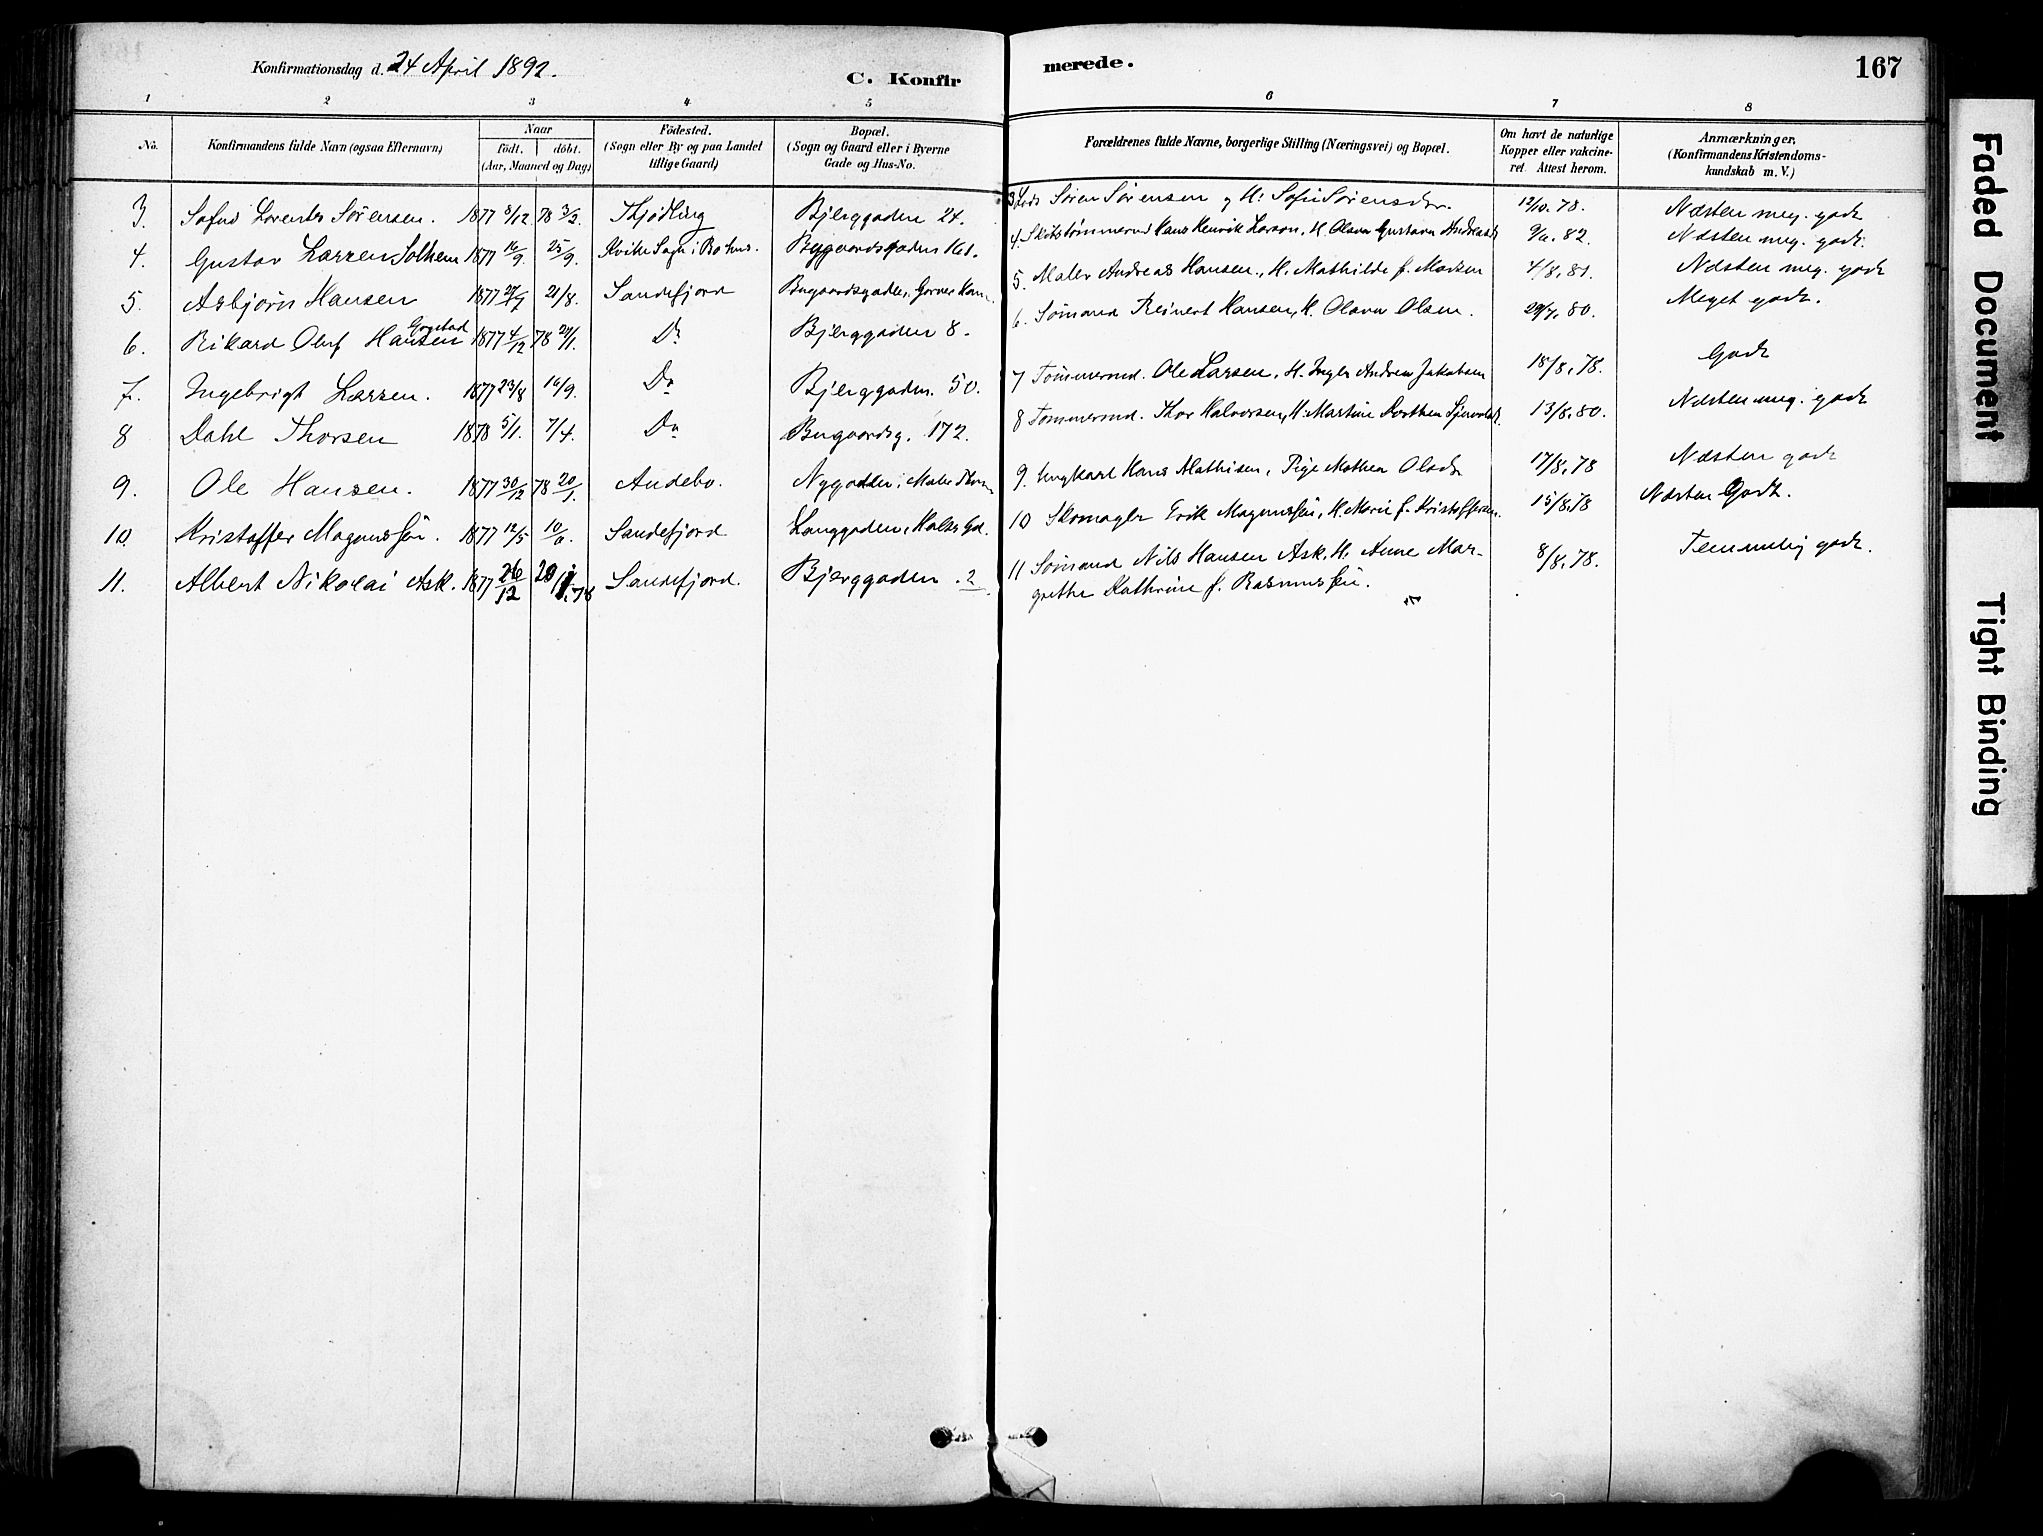 Konfirmationsdag d. 24 April 1892.
C. Konfir
merede.
167
1 2 3 4 5 6 7 8
No.
Konfirmandens fulde Navn (ogsaa Efternavn)
Naar
födt. döbt.
(Aar, Maaned og Dag)
Födested.
(Sogn eller By og paa Landet
tillige Gaard)
Bopæl.
(Sogn og Gaard eller i Byerne
Gade og Hus-No.
Forældrenes fulde Navne, borgerlige Stilling (Næringsvei) og Bopæl.
Om havt de naturlige
Kopper eller vakcine-
ret Attest herom.
Anmærkninger,
(Konfirmandens Kristendoms-
kundskab m. V.)
3. Sofus Lorents Sørensen. 1877 8/12 78 3/2. Thjødling Bjerggaden 24. 3 Lods Søren Sørensen g H: Sofie Sørensdr. 12/10. 78. Næsten meg. godt
4. Gustav Larsen Solhem 1877 16/9. 25/9. Kville Sogn i Bohus. Bygaardsgaden 161. 4. Skibstømmermd Hans Henrik Larson, H. Olava Gustava 82. Næsten meg. godt.
5. Asbjørn Hansen 1877 27/7 21/8. Sandefjord Bugaardsgaden, Garver 5. Maler Andreas Hansen., H. Mathilde f. Madsen 4/8. 81. Næsten meg. godt
6. Rikard Oluf Hansen Gogstad 1877 4/12 78 20/1. Do Bjerggaden 8. 6. Sømand Reinert Hansen, H. Olava Olsen. 29/7. 80. Meget godt.
7. Ingebrigt Larsen. 1877 23/8 16/9. Do Bjerggaden. 50. 7 Tømmermd. Ole Larsen, H. Inger Andrea Jakobsen 18/8. 78. Godt
8 Dahl Thorsen 1878 5/1. 7/4. Do Bugaardsg. 172. 8 Tømmermd. Thor Halvorsen, H. Martine Dorthea 13/8. 80. Næsten meg. godt
9. Ole Hansen. 1877 30/12 78 20/1. Andebo. Nygaden, Maler 9. Ungkarl Hans Mathisen, Pige Mathea Olsdr 17/8. 78 Næsten godt
10. Kristoffer Magnussen. 1877 12/5 10/6. Sandefjord Langgaden, 10 Skomager Erik Magnussen, H. Marie f. Kristoffersen. 15/8. 78 Næsten Godt.
11. Albert Nikolai Ask. 1877 26/12 20/1. 78 Sandefjord. Bjerggaden. 2. 11 Sømand Nils Hansen Ask. H. Anne Mar- 8/8. 78. Temmelig godt.
grethe Kathrine f. Rasmussen.
Faded Document
Tight Binding